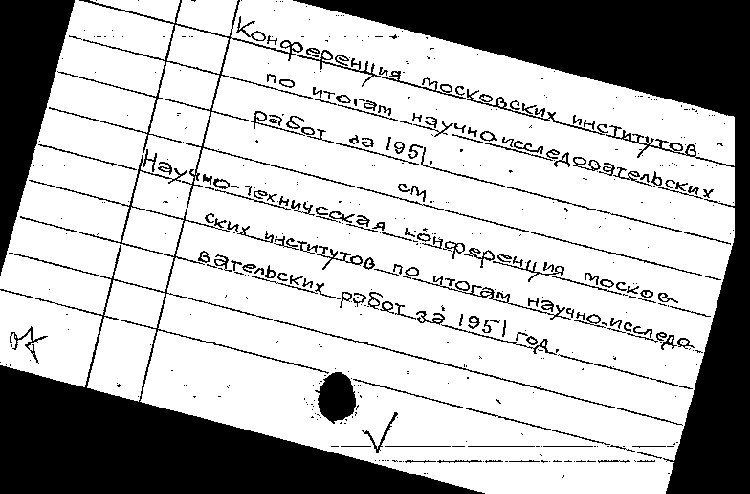 Конференция московских институтов
по итогам научно-исследовательских
работ за 1951.
см.
Научно-техническая конференция москов-
ских институтов по итогам научно-исследо-
вательских работ за 1951 год.